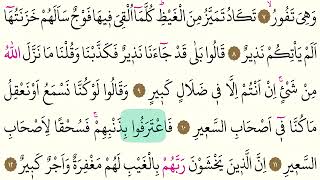 وَهِيَ تَفُورُ ۙ ٧ تَكَادُ تَمَيَّزُ مِنَ الْغَيْظِ ؕ كُلَّمَاۤ اُلْقِيَ فِيهَا فَوْجٌ سَاَلَهُمْ خَزَنَتُهَاۤ
اَلَمْ يَاْتِكُمْ نَذِيرٌ ٨ قَالُوا بَلٰى قَدْ جَاۤءَنَا نَذِيرٌ فَكَذَّبْنَا وَقُلْنَا مَا نَزَّلَ اللّٰهُ
مِنْ شَيْءٍ ۚ اِنْ اَنْتُمْ اِلَّا فِي ضَلَالٍ كَبِيرٍ ٩ وَقَالُوا لَوْ كُنَّا نَسْمَعُ اَوْ نَعْقِلُ
مَا كُنَّا فِيۤ اَصْحَابِ السَّعِيرِ ١٠ فَاعْتَرَفُوا بِذَنْبِهِمْ ۚ فَسُحْقًا لِاَصْحَابِ
السَّعِيرِ ١١ اِنَّ الَّذِينَ يَخْشَوْنَ رَبَّهُمْ بِالْغَيْبِ لَهُمْ مَغْفِرَةٌ وَاَجْرٌ كَبِيرٌ ١٢